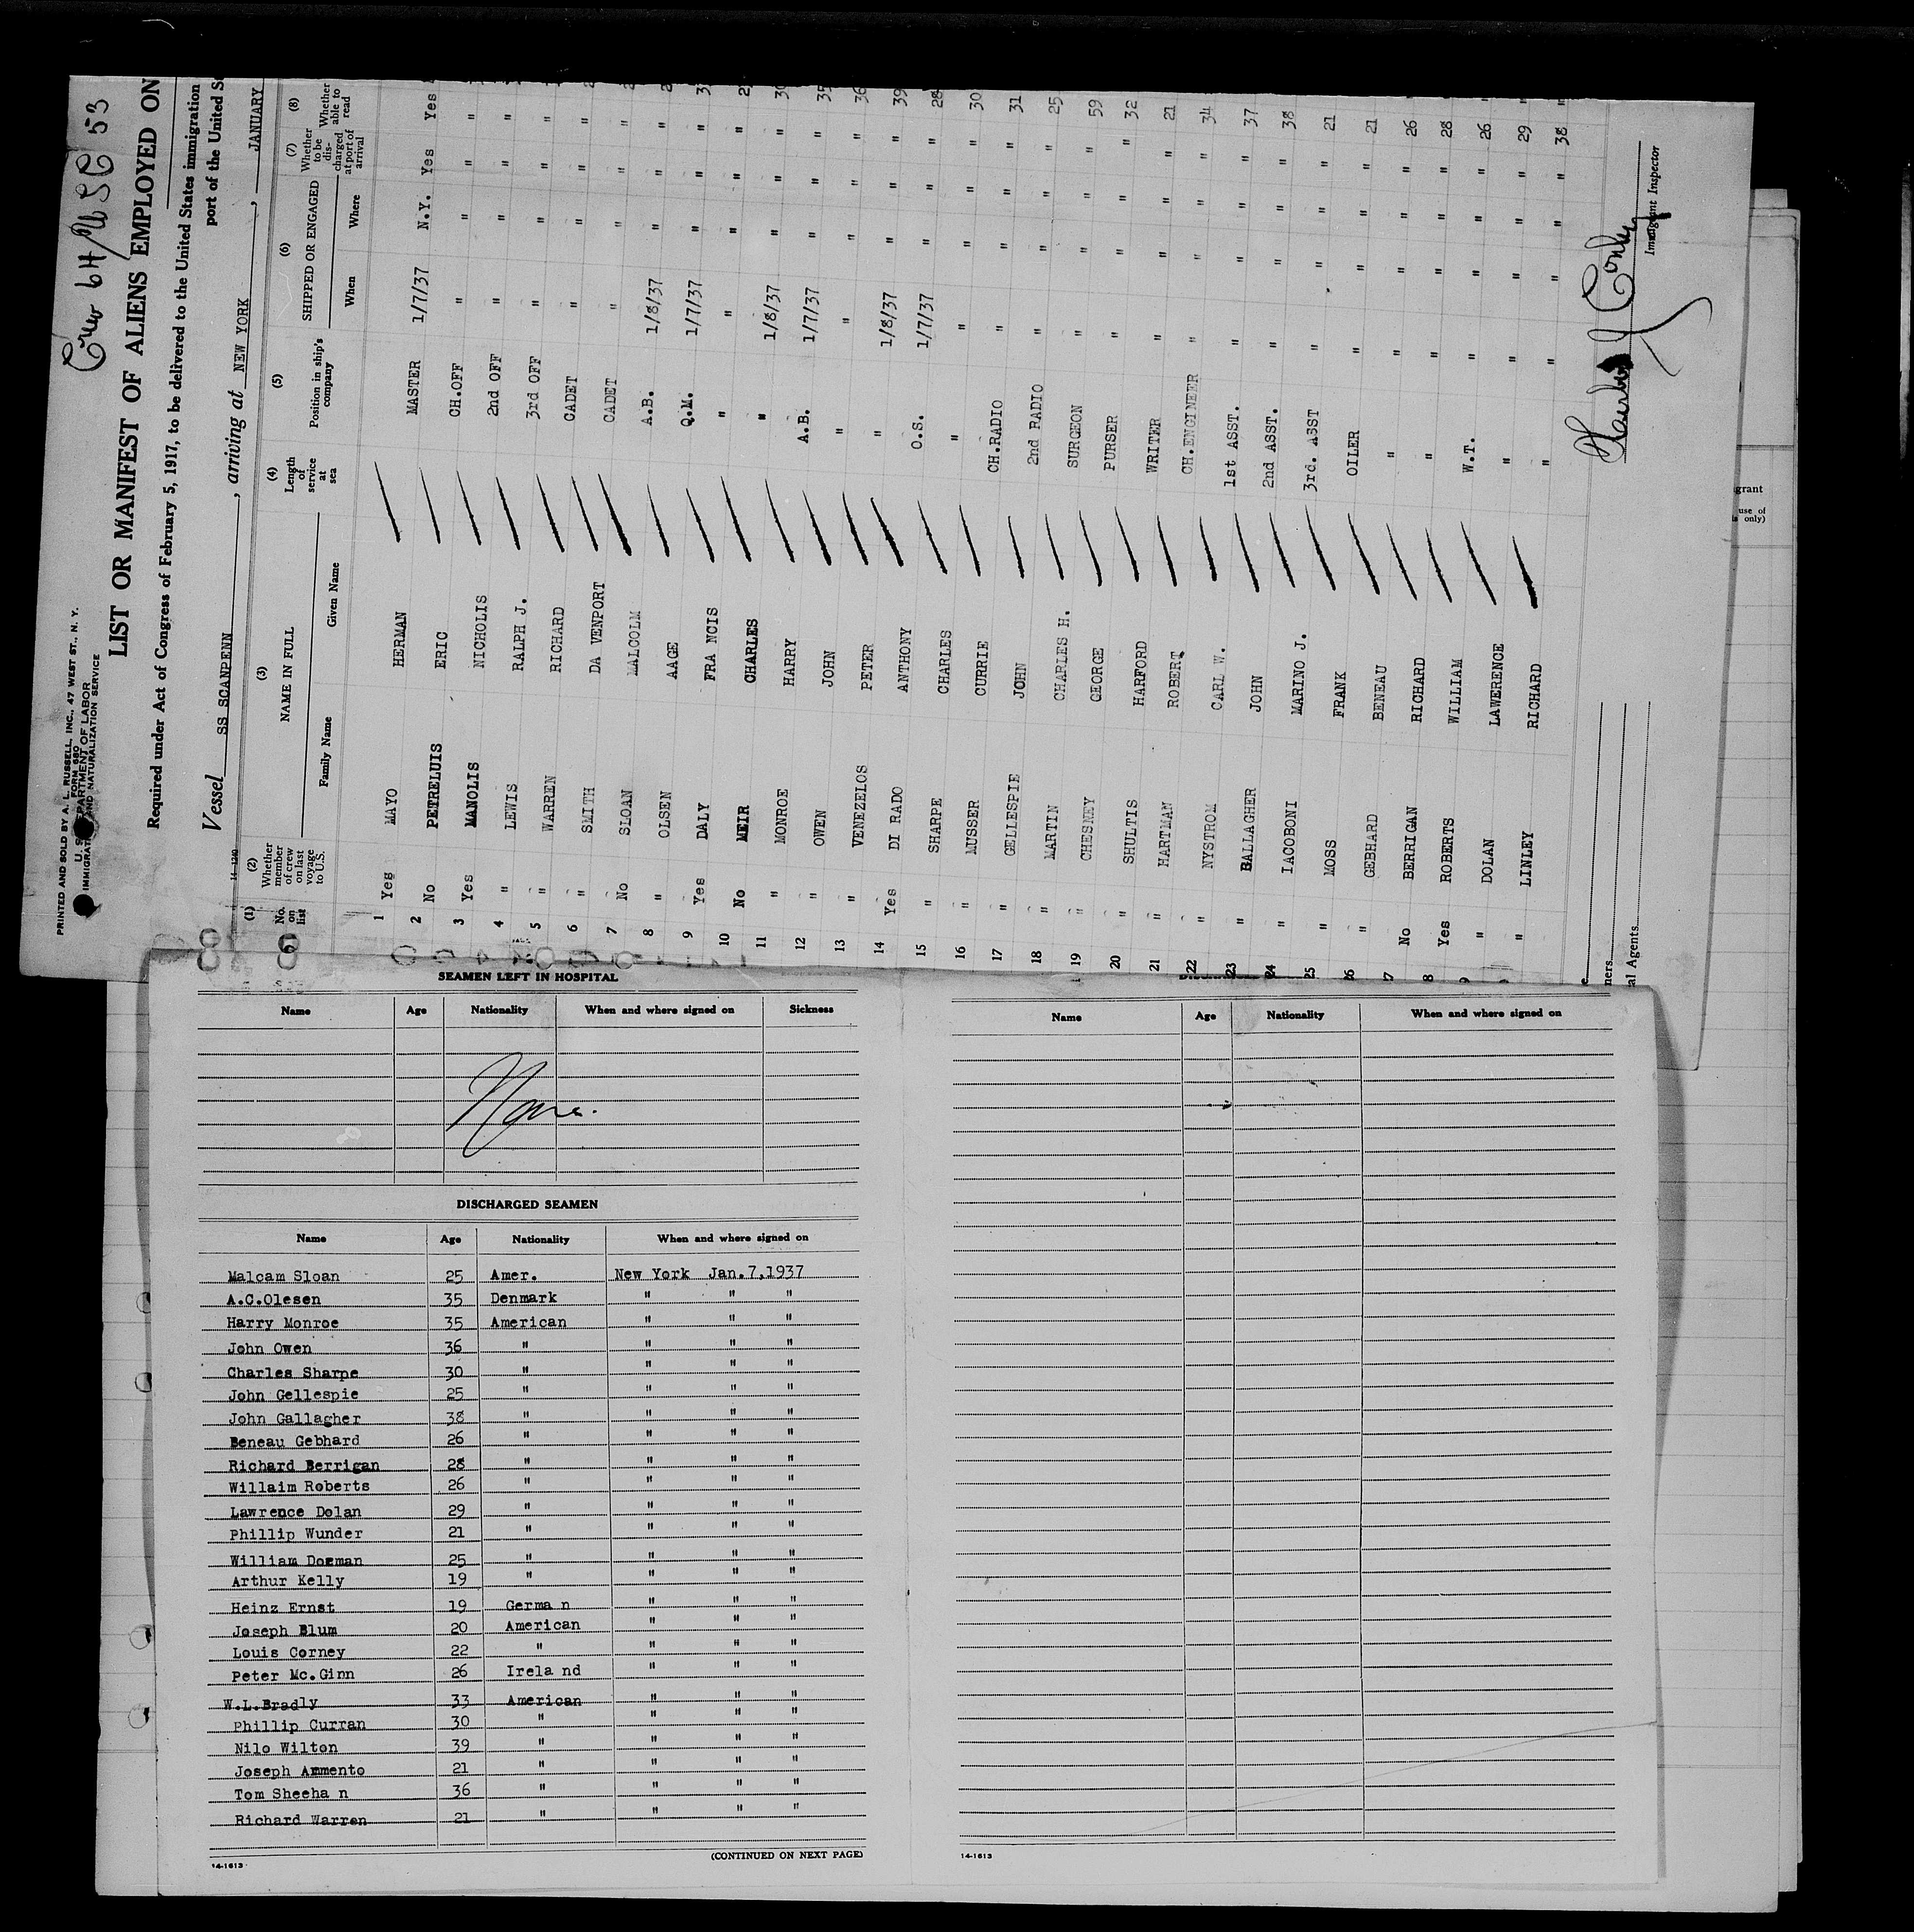 Crew 6H/
53
PRINTED AND SOLD BY A. L. RUSSELL, INC., 47 WEST ST., N. Y.
FORM 680
U. S. DEPARTMENT OF LABOR
IMMIGRATION AND NATURALIZATION SERVICE
LIST OR MANIFEST OF ALIENS EMPLOYED ON
Required under Act of Congress of February 5, 1917, to be delivered to the United States immigration
port of the United S
Vessel SS SCANPENN , arriving at NEW YORK , JANUARY
14-1240
(1) No. on list (2) Whether member of crew on last voyage to U.S. (3) NAME IN FULL Family Name Given Name (4) Length of service at sea (5) Position in ship's company (6) SHIPPED OR ENGAGED When Where (7) Whether to be discharged at port of arrival (8) Whether able to read
1 Yes MAYO HERMAN MASTER 1/7/37 N.Y. Yes Yes
2 No PETRELUIS ERIC CH.OFF " " " "
3 Yes MANOLIS NICHOLIS 2nd OFF " " " "
4 " LEWIS RALPH J. 3rd OFF " " " "
5 " WARREN RICHARD CADET " " " "
6 " SMITH DA VENPORT CADET " " " "
7 No SLOAN MALCOLM A.B. 1/8/37 " " "
8 " OLSEN AAGE Q.M. 1/7/37 " " "
9 Yes DALY FRA NCIS " " " " "
10 No MEIR CHARLES " 1/8/37 " " "
11 " MONROE HARRY A.B. 1/7/37 " " " 35
12 " OWEN JOHN " " " " " 36
13 " VENEZELOS PETER " 1/8/37 " " " 39
14 Yes DI RADO ANTHONY O.S. 1/7/37 " " " 28
15 " SHARPE CHARLES " " " " " 30
16 " MUSSER CURRIE CH.RADIO " " " " 31
17 " GELLESPIE JOHN 2nd RADIO " " " " 25
18 " MARTIN CHARLES H. SURGEON " " " " 59
19 " CHESNEY GEORGE PURSER " " " " 32
20 " SHULTIS HARFORD WRITER " " " " 21
21 " HARTMAN ROBERT CH.ENGINEER " " " " 34
22 " NYSTROM CARL W. 1st ASST. " " " " 37
23 " BALLAGHER JOHN 2nd ASST. " " " " 38
24 " IACOBONI MARINO J. 3rd. ASST " " " " 21
25 " MOSS FRANK OILER " " " " 21
26 " GEBHARD BENEAU " " " " " 26
7 No BERRIGAN RICHARD " " " " " 28
8 Yes ROBERTS WILLIAM W.T. " " " " 26
9 " DOLAN LAWERENCE " " " " " 29
" LINLEY RICHARD " " " " " 38
Immigrant Inspector
ners.
al Agents.
grant
use of
only)
SEAMEN LEFT IN HOSPITAL
Name Age Nationality When and where signed on Sickness
None.
DISCHARGED SEAMEN
Name Age Nationality When and where signed on
Malcam Sloan 25 Amer. New York Jan.7,1937
A.C.Olesen 35 Denmark " " "
Harry Monroe 35 American " " "
John Owen 36 " " " "
Charles Sharpe 30 " " " "
John Gellespie 25 " " " "
John Gallagher 38 " " " "
Beneau Gebhard 26 " " " "
Richard Berrigan 28 " " " "
Willaim Roberts 26 " " " "
Lawrence Dolan 29 " " " "
Phillip Wunder 21 " " " "
William Dorman 25 " " " "
Arthur Kelly 19 " " " "
Heinz Ernst 19 Germa n " " "
Joseph Blum 20 American " " "
Louis Corney 22 " " " "
Peter Mc.Ginn 26 Irela nd " " "
W.L.Bradly 33 American " " "
Phillip Curran 30 " " " "
Nilo Wilton 39 " " " "
Joseph Armmento 21 " " " "
Tom Sheeha n 36 " " " "
Richard Warren 21 " " " "
14-1613 (CONTINUED ON NEXT PAGE)
Name Age Nationality When and where signed on
14-1613